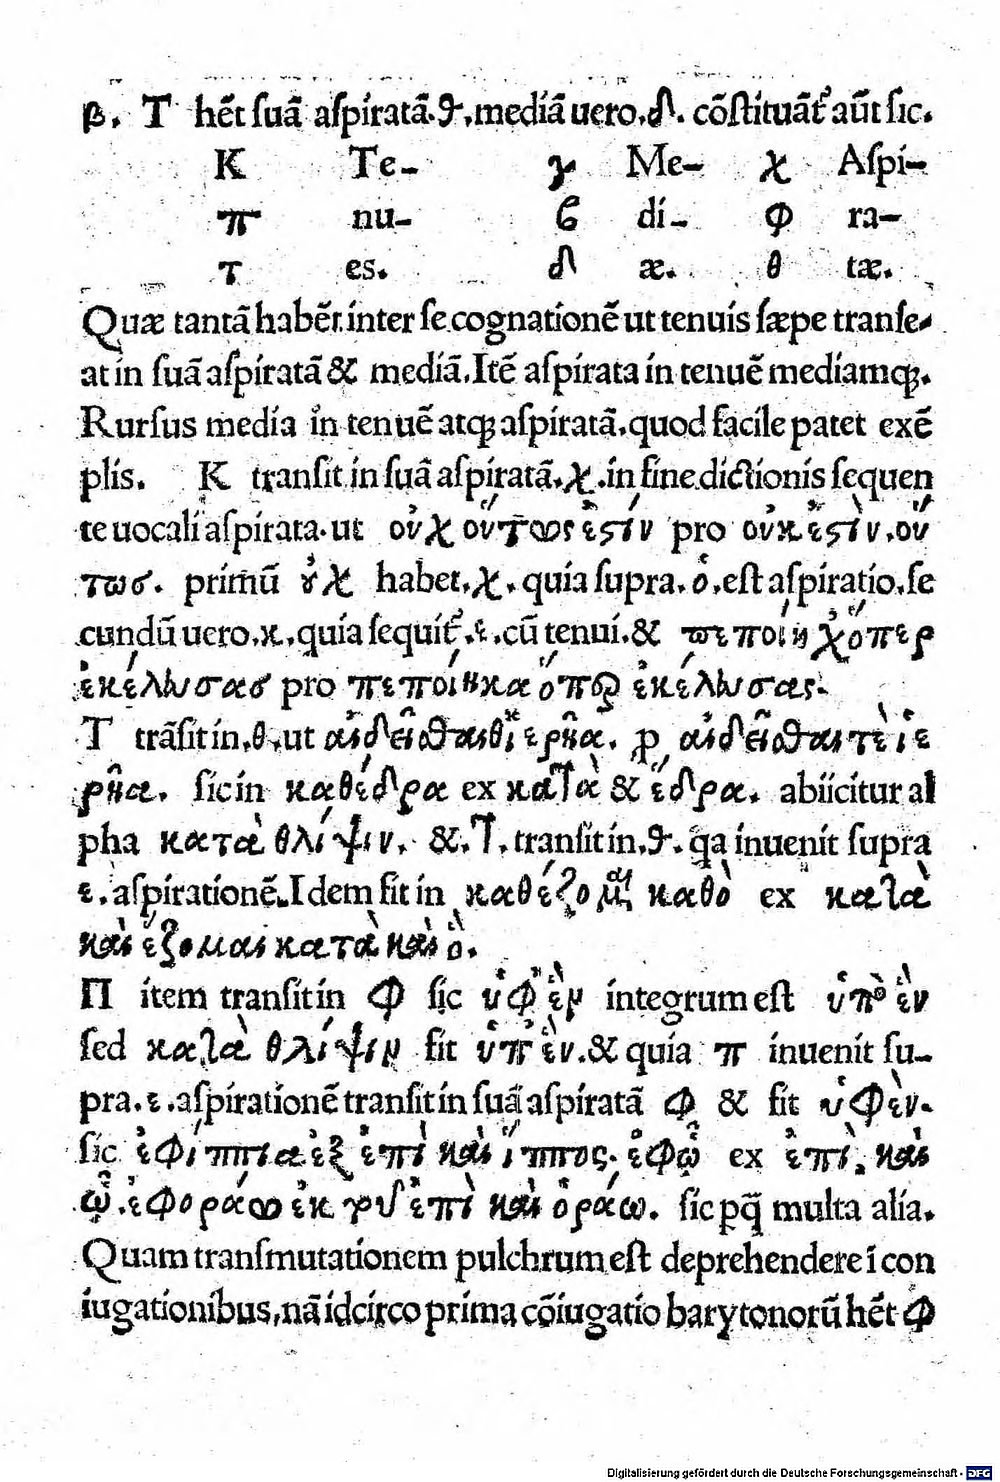 β. T hēt ſuā aſpiratā.ϑ.mediā uero.δ. cōſtituāt᷑ aūt ſic.
K Te- γ Me- χ Aſpi-
π nu- ϐ di- φ ra-
τ es. δ æ. θ tæ.
Quæ tantā habēt inter ſe cognationē ut tenuis ſæpe tranſe-
at in ſuā aſpiratā & mediā. Itē aſpirata in tenuē mediamqꝫ.
Rurſus media in tenuē atqꝫ aſpiratā. quod facile patet exē
plis. K tranſit in ſuā aſpiratā.χ.in fine dictionis ſequen
te uocali aſpirata. ut οὐχ οὕτως ἐϛίν pro οὐκ ἐϛὶν.οὕ
τωσ. primū ȣχ habet.χ.quia ſupra.ὁ.eſt aſpiratio.ſe
cundū uero.κ.quia ſequit᷑.ε.cū tenui.& πεποίηχ ὅπερ
ἐκέλευσασ pro πεποίηκα ὅπερ ἐκέλευσας.
T trāſit in.θ.ut αἰδεῖσθαι θ᾽ ἱερῆα. ꝓ αἰδεῖσθαι τὲ ἱε
ρῆα. ſic in καθέδρα ex κατὰ & ἕδρα. abiicitur al
pha κατὰ θλίψιν. &.τ.tranſit in.ϑ.qa inuenit ſupra
ε.aſpirationē. Idem fit in καθέζομαι καθὸ ex κατὰ
καὶ ἕζομαι κατὰ καὶ ὁ.
Π item tranſit in φ ſic ὑφ᾽ ἓν integrum eſt ὑπὸ ἓν
ſed κατὰ θλίψιν fit ὑπ᾽ ἓν.& quia π inuenit ſu-
pra.ε.aſpirationē tranſit in ſuā aſpiratā φ & fit ὑφὲν.
ſic ἐφίππια ἐξ ἐπὶ καὶ ἵππος. ἐφῶ ex ἐπὶ. καὶ
ᾧ.ἐφοράω ἐκ τοῦ ἐπὶ καὶ ὁράω. ſic ꝑq̄ multa alia.
Quam tranſmutationem pulchrum eſt deprehendere ī con
iugationibus,nā idcirco prima cōiugatio barytonorū hēt φ
Digitalisierung gefördert durch die Deutsche Forschungsgemeinschaft - DFG